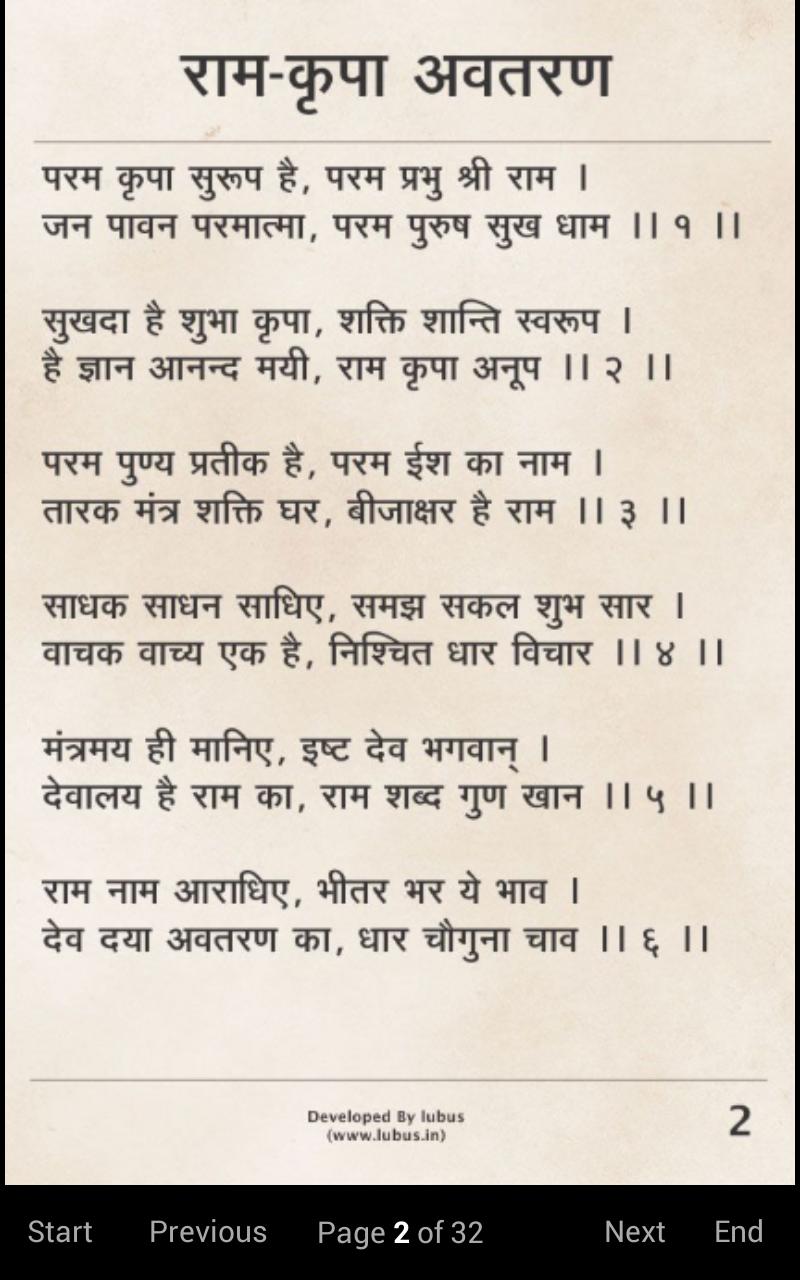 राम-कृपा अवतरण
परम कृपा सुरूप है, परम प्रभु श्री राम ।
जन पावन परमात्मा, परम पुरुष सुख धाम ।। १ ।।
सुखदा है शुभा कृपा, शक्ति शान्ति स्वरूप ।
है ज्ञान आनन्द मयी, राम कृपा अनूप ।। २ ।।
परम पुण्य प्रतीक है, परम ईश का नाम ।
तारक मंत्र शक्ति घर, बीजाक्षर है राम ।। ३ ।।
साधक साधन साधिए, समझ सकल शुभ सार ।
वाचक वाच्य एक है, निश्चित धार विचार ।। ४ ।।
मंत्रमय ही मानिए, इष्ट देव भगवान् ।
देवालय है राम का, राम शब्द गुण खान ।। ५ ।।
राम नाम आराधिए, भीतर भर ये भाव ।
देव दया अवतरण का, धार चौगुना चाव ।। ६ ।।
Developed By lubus
(www.lubus.in)
2
Start Previous Page 2 of 32 Next End